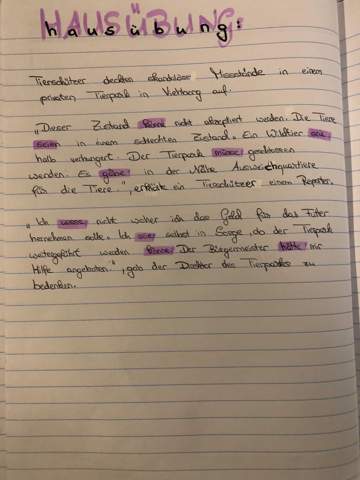 HAUSÜBUNG
hausübung:
Tierschützer deckten skandalöse Missstände in einem
privaten Tierpark in Viehberg auf.
„Dieser Zustand könne nicht akzeptiert werden. Die Tiere
seien in einem schlechten Zustand. Ein Wildtier sei
halb verhungert. Der Tierpark müsse geschlossen
werden. Es gäbe in der Nähe Ausweichquartiere
für die Tiere", erklärte ein Tierschützer einem Reporter.
„Ich wisse nicht woher ich das Geld für das Futter
hernehmen solle. Ich sei selbst in Sorge, ob der Tierpark
weitergeführt werden könne. Der Bürgermeister hätte mir
Hilfe angeboten.", gab der Direktor des Tierparks zu
bedenken.